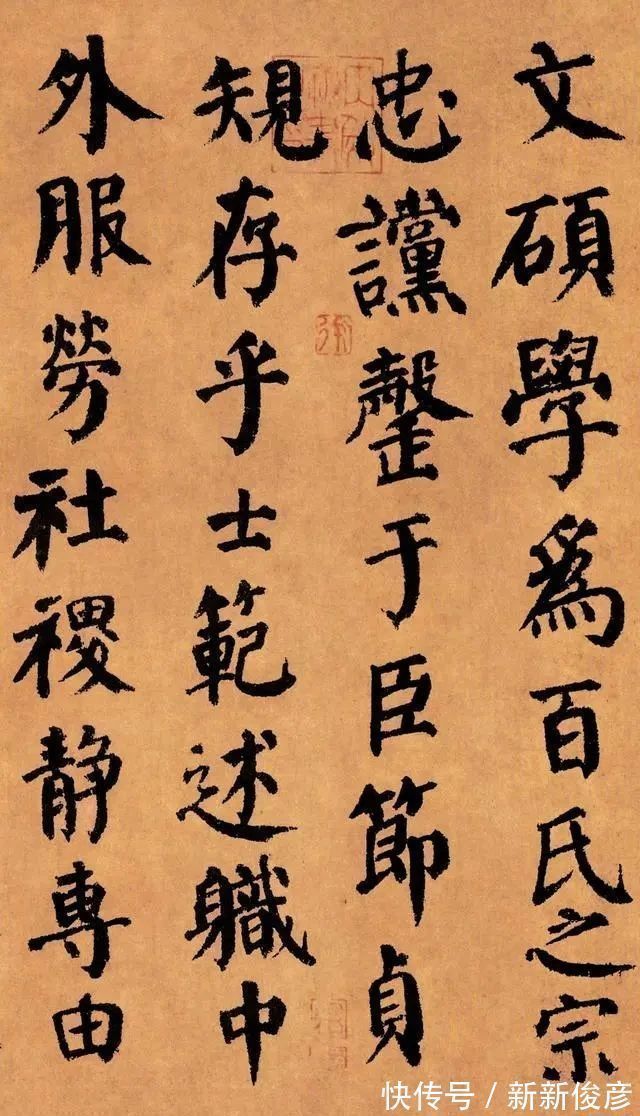 文碩學爲百氏之宗
忠讜罄于臣節貞
規存乎士範述職中
外服勞社稷静專由
快传号 / 新新俊彦